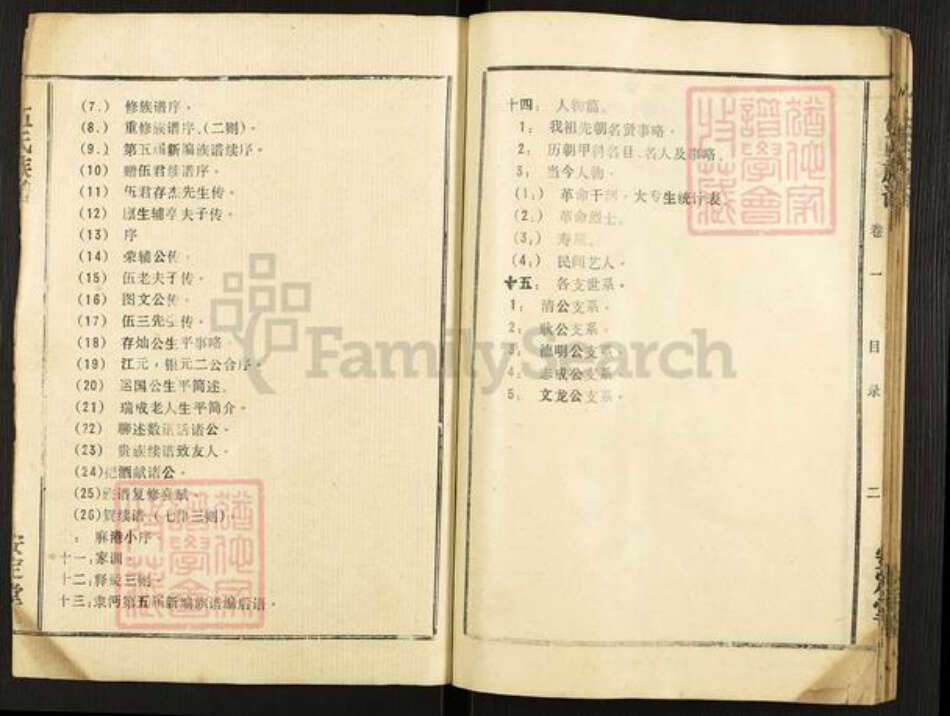 (7.) 修族谱序。
(8.) 重修族谱序、(二则)。
(9.) 第五届新编族谱续序。
(10) 赠伍君续谱序。
(11) 伍君存杰先生传。
(12) 生辅亭夫子传。
(13) 序
(14) 荣辅公传。
(15) 伍老夫子传。
(16) 图文公传。
(17) 伍三先生传。
(18) 存灿公生平事略
(19) 江元,银元二公合序。
(20) 运国公生平简述。
(21) 瑞成老人生平简介。
(22) 聊述数语话诸公。
(23) 贵族续谱致友人。
(24)把酒献诸公。
(25)族谱复修喜赋。
(26)贺续谱、(七律三则)。
: 麻港小序
十一;家训。
十二;释疑三则。
十三;隶河第五届新编族谱编后语。
伍氏族谱
安定堂
十四; 人物篇。
1; 我祖先朝名贤事略。
2; 历朝甲科名目、名人及事略。
3; 当今人物。
(1.) 革命干部,大专生统计表。
(2.) 革命烈士。
(3.) 寿星。
(4.) 民间艺人。
十五; 各支世系。
1; 清公支系。
2; 耿公支系。
3; 德明公支系。
4; 志成公支系。
5; 文龙公支系。
卷一目录
二
安定堂
FamilySearch